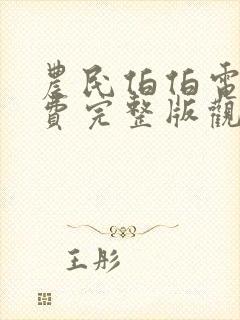 農民伯伯電
費完整版觀
王彤